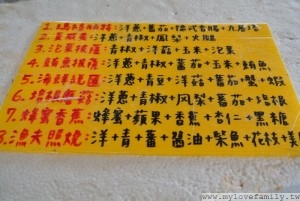 洋蔥+蕃茄+德式香腸+九層塔
洋蔥+青椒+鳳梨+火腿
3.泡菜披薩:青椒+洋菇+玉米+泡菜
4.鮪魚披薩:洋蔥+蕃茄+玉米+鮪魚
5.海鮮總匯:洋蔥+青豆+洋菇+蕃茄+蟹+蝦
6.培根蘑菇:洋蔥+青椒+鳳梨+蕃茄+培根
7.蜂蜜香蕉:蜂蜜+蘋果+香蕉+杏仁+黑糖
8.漁夫照燒:洋+青+蕃+醬油+柴魚+花枝+美
www.mylovefamily.tw